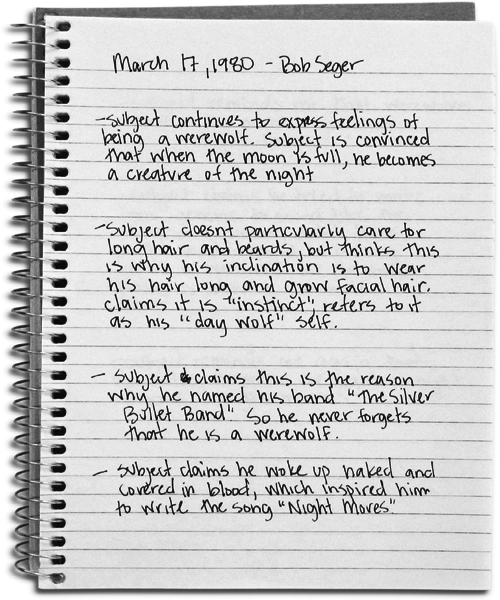 March 17, 1980 - Bob Seger
- subject continues to express feelings of
being a werewolf. Subject is convinced
that when the moon is full, he becomes
a creature of the night
- subject doesnt particularly care for
long hair and beards, but thinks this
is why his inclination is to wear
his hair long and grow facial hair.
claims it is "instinct", refers to it
as his "day wolf" self.
- subject claims this is the reason
why he named his band "The Silver
Bullet Band" So he never forgets
that he is a werewolf.
- subject claims he woke up naked and
covered in blood, which inspired him
to write the song "Night Moves"